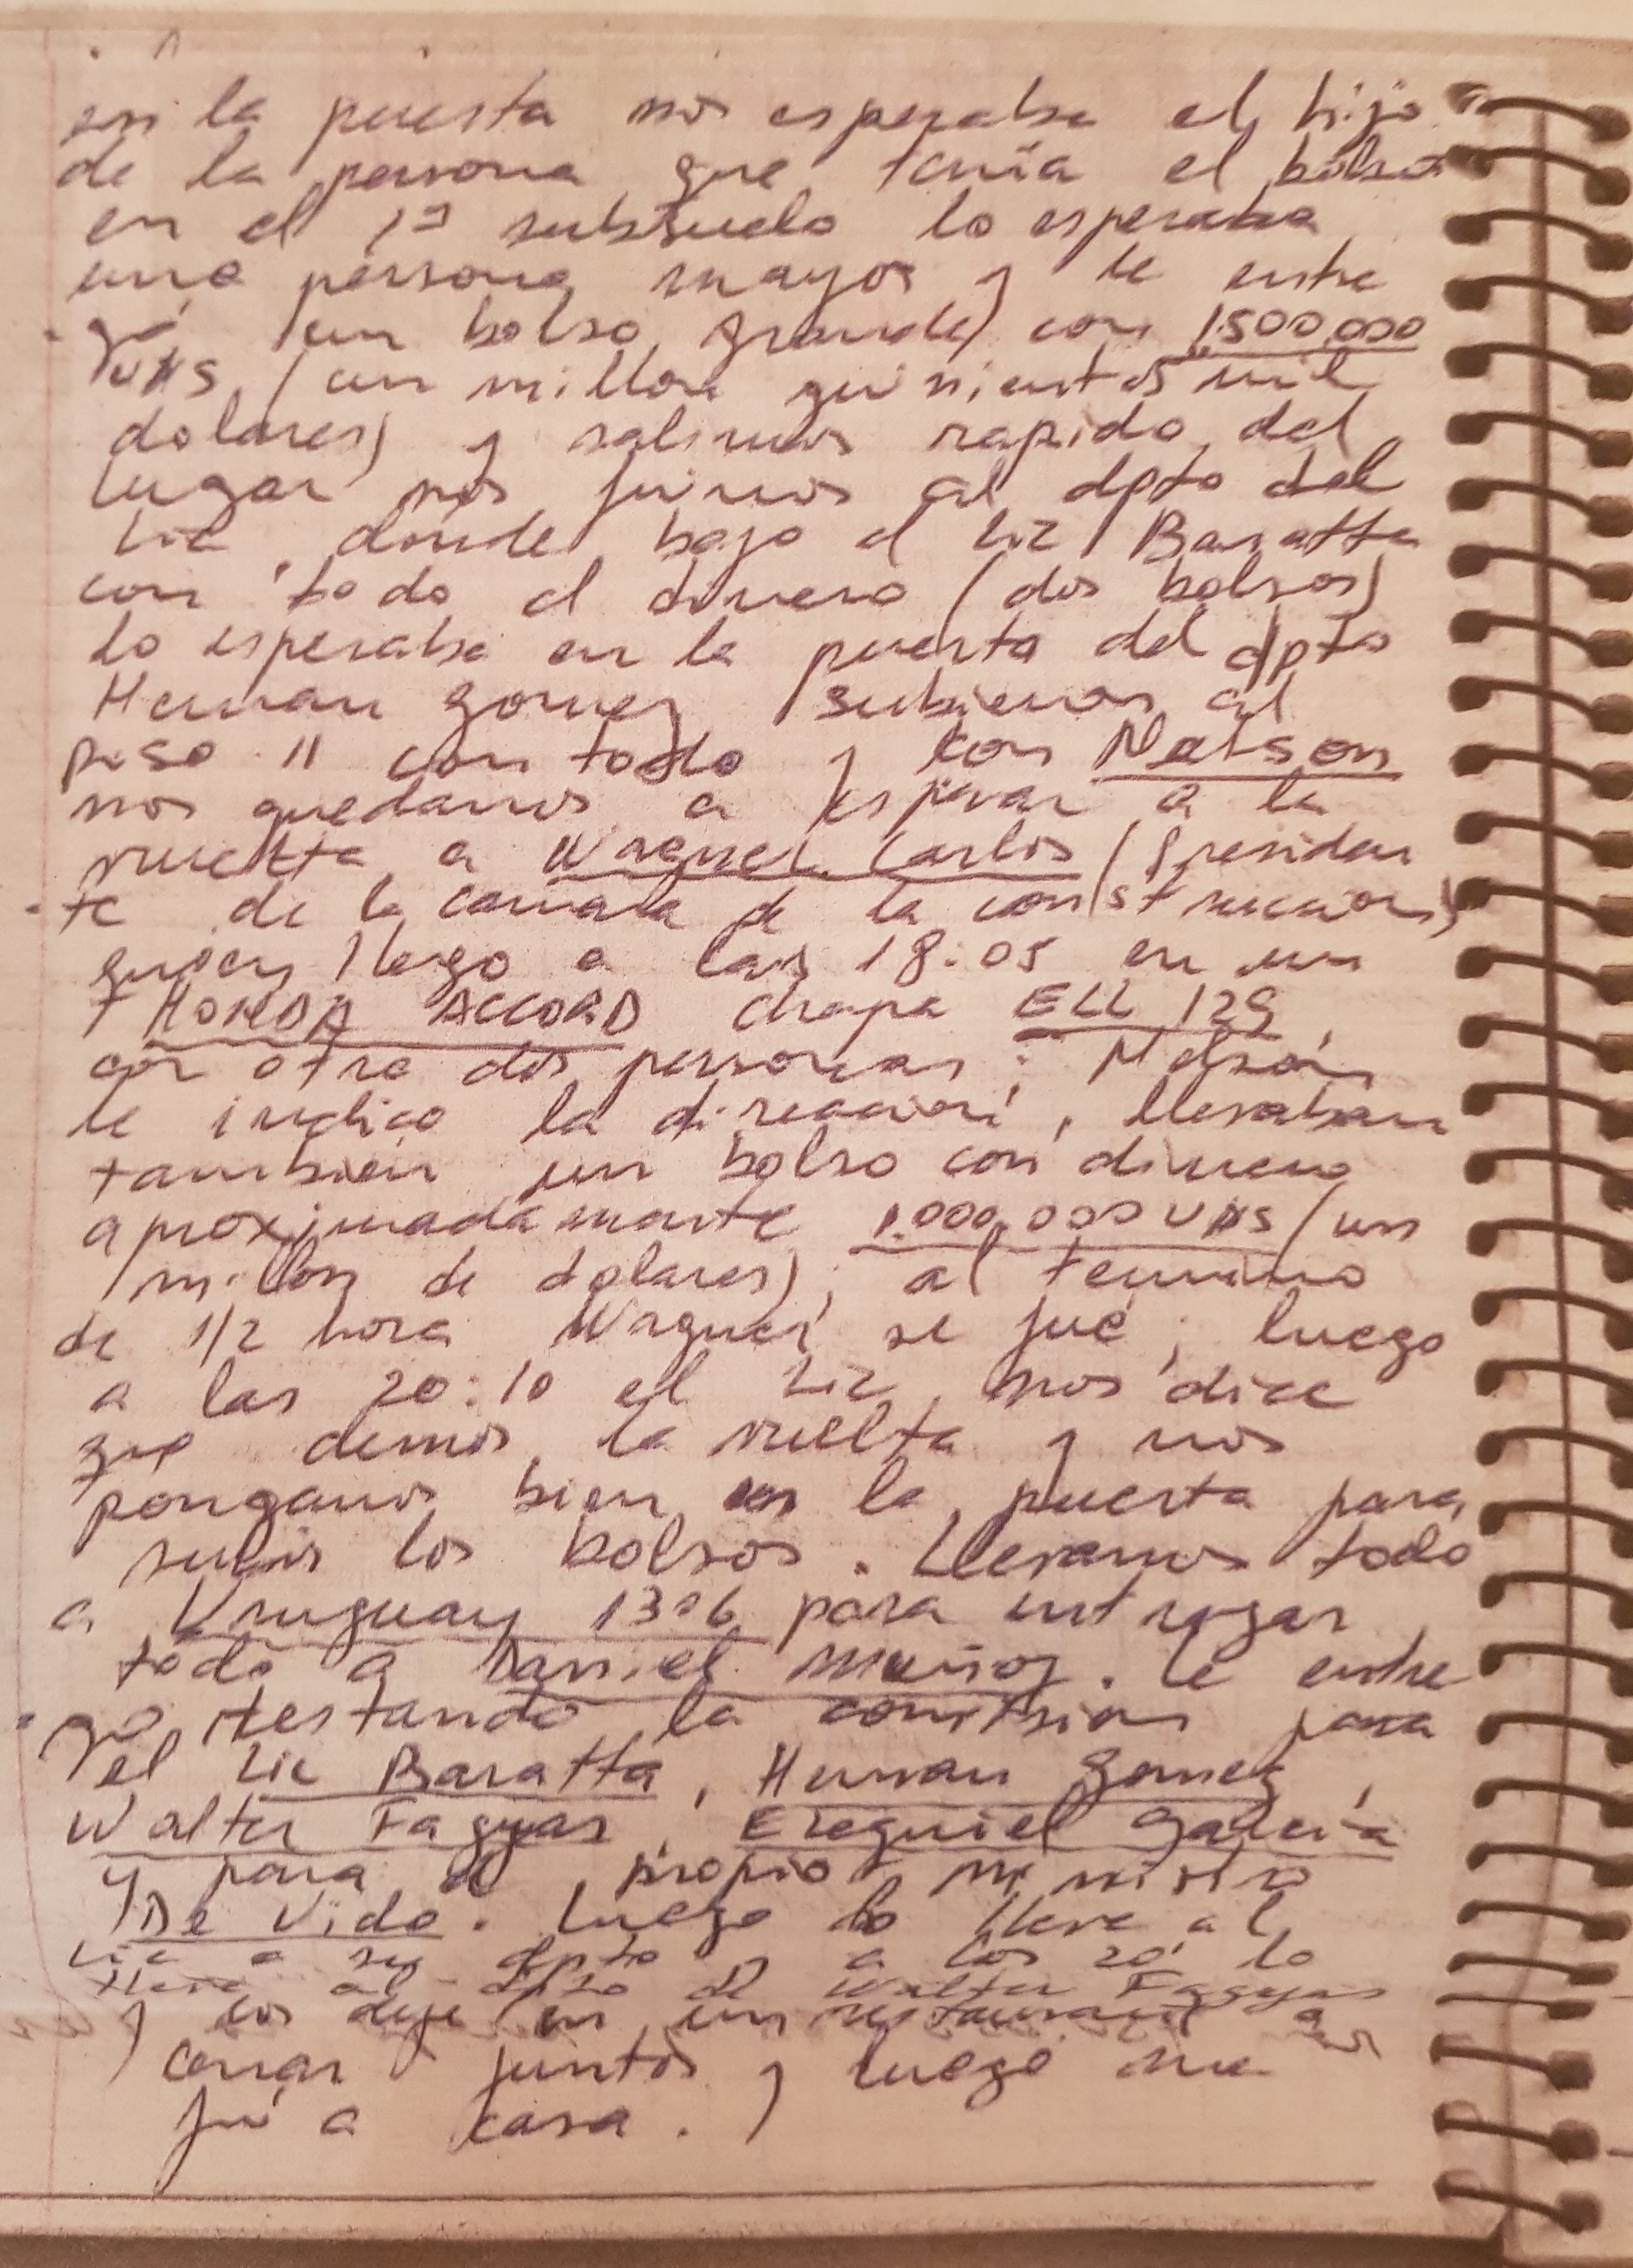 en la puesta nos esperaba el hijo
de la persona que tenia el bolso
en el 1º subsuelo lo esperaba
una persona mayor y le entre
- go (un bolso grande) con 1.500.000
U$S (un millon quinientos mil
dolares) y salimos rapido del
lugar nos fuimos al dpto del
Lic, donde bajo el Lic Baratta
con todo el dinero (dos bolsos)
lo esperaba en la puerta del dpto
Hernan Gomez subieron al
piso 11 con todo y con Nelson
nos quedamos a esperar a la
vuelta a Wagner Carlos (Presiden
- te de la camara de la construccion)
quien llego a las 18:05 en un
HONDA ACCORD chapa ELL 129,
con otra dos personas; Nelson
le indico la direccion, llevaban
tambien un bolso con dinero
aproximadamente 1.000.000 U$S (un
millon de dolares); al termino
de 1/2 hora Wagner se fué; luego
a las 20:10 el Lic nos dice
que demos la vuelta y nos
pongamos bien en la puerta para
subir los bolsos. Llevamos todo
a Uruguay 1306 para entregar
todo a Daniel Muñoz. le entre
- go restando la comision para
el Lic Baratta, Hernan Gomez,
Walter Fagyas, Ezequiel Garcia
y para el propio ministro
De Vido. Luego lo lleve al
Lic a su dpto y a los 20' lo
lleve al dpto de Walter Fagyas
y los deje en un restaurant a
cenar juntos y luego me
fui a casa.